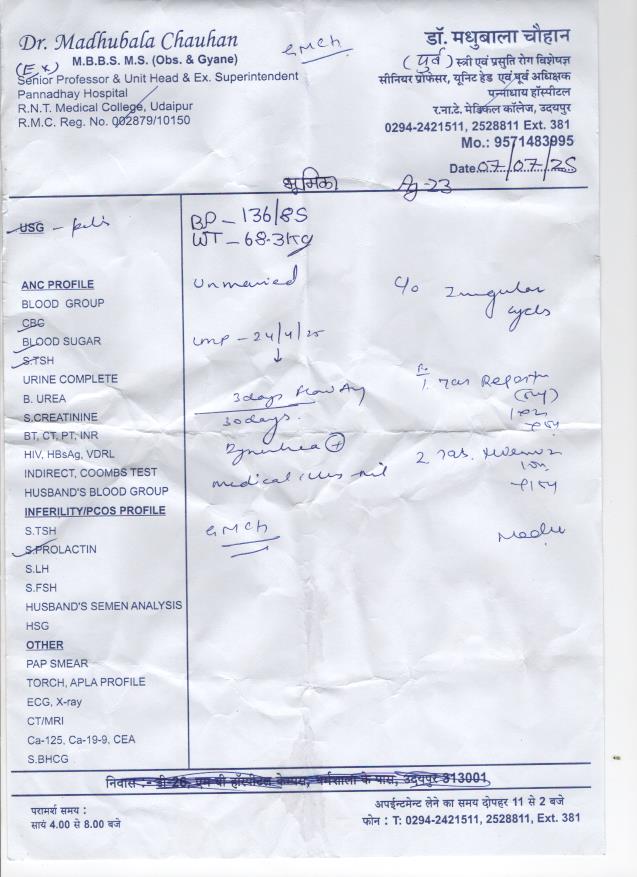 Dr. Madhubala Chauhan
M.B.B.S. M.S. (Obs. & Gyane)
(Ex)
Senior Professor & Unit Head & Ex. Superintendent
Pannadhay Hospital
R.N.T. Medical College, Udaipur
R.M.C. Reg. No. 002879/10150
GMCH
डॉ. मधुबाला चौहान
(पुर्व) स्त्री एवं प्रसुति रोग विशेषज्ञ
सीनियर प्रोफेसर, यूनिट हेड एवं पूर्व अधिक्षक
पन्नाधाय हॉस्पीटल
र.ना.टे. मेडिकल कॉलेज, उदयपुर
0294-2421511, 2528811 Ext. 381
Mo.: 9571483995
Date 07/07/25
भूमिका Ag-23
USG - pelvis
BP - 136/85
WT - 68.3kg
ANC PROFILE
BLOOD GROUP
CBC
BLOOD SUGAR
S.TSH
URINE COMPLETE
B. UREA
S.CREATININE
BT, CT, PT, INR
HIV, HBsAg, VDRL
INDIRECT, COOMBS TEST
HUSBAND'S BLOOD GROUP
INFERILITY/PCOS PROFILE
S.TSH
S.PROLACTIN
S.LH
S.FSH
HUSBAND'S SEMEN ANALYSIS
HSG
OTHER
PAP SMEAR
TORCH, APLA PROFILE
ECG, X-ray
CT/MRI
Ca-125, Ca-19-9, CEA
S.BHCG
Unmarried
C/o Irregular
cycles
LMP - 24/4/25
3 days flow
30 days.
medical nil
GMCH
1 Tas
2 Tas.
निवास :- डी-26, एम बी हॉस्पीटल केम्पस, धर्मशाला के पास, उदयपुर 313001
परामर्श समय :
सायं 4.00 से 8.00 बजे
अपईन्टमेन्ट लेने का समय दोपहर 11 से 2 बजे
फोन : T: 0294-2421511, 2528811, Ext. 381